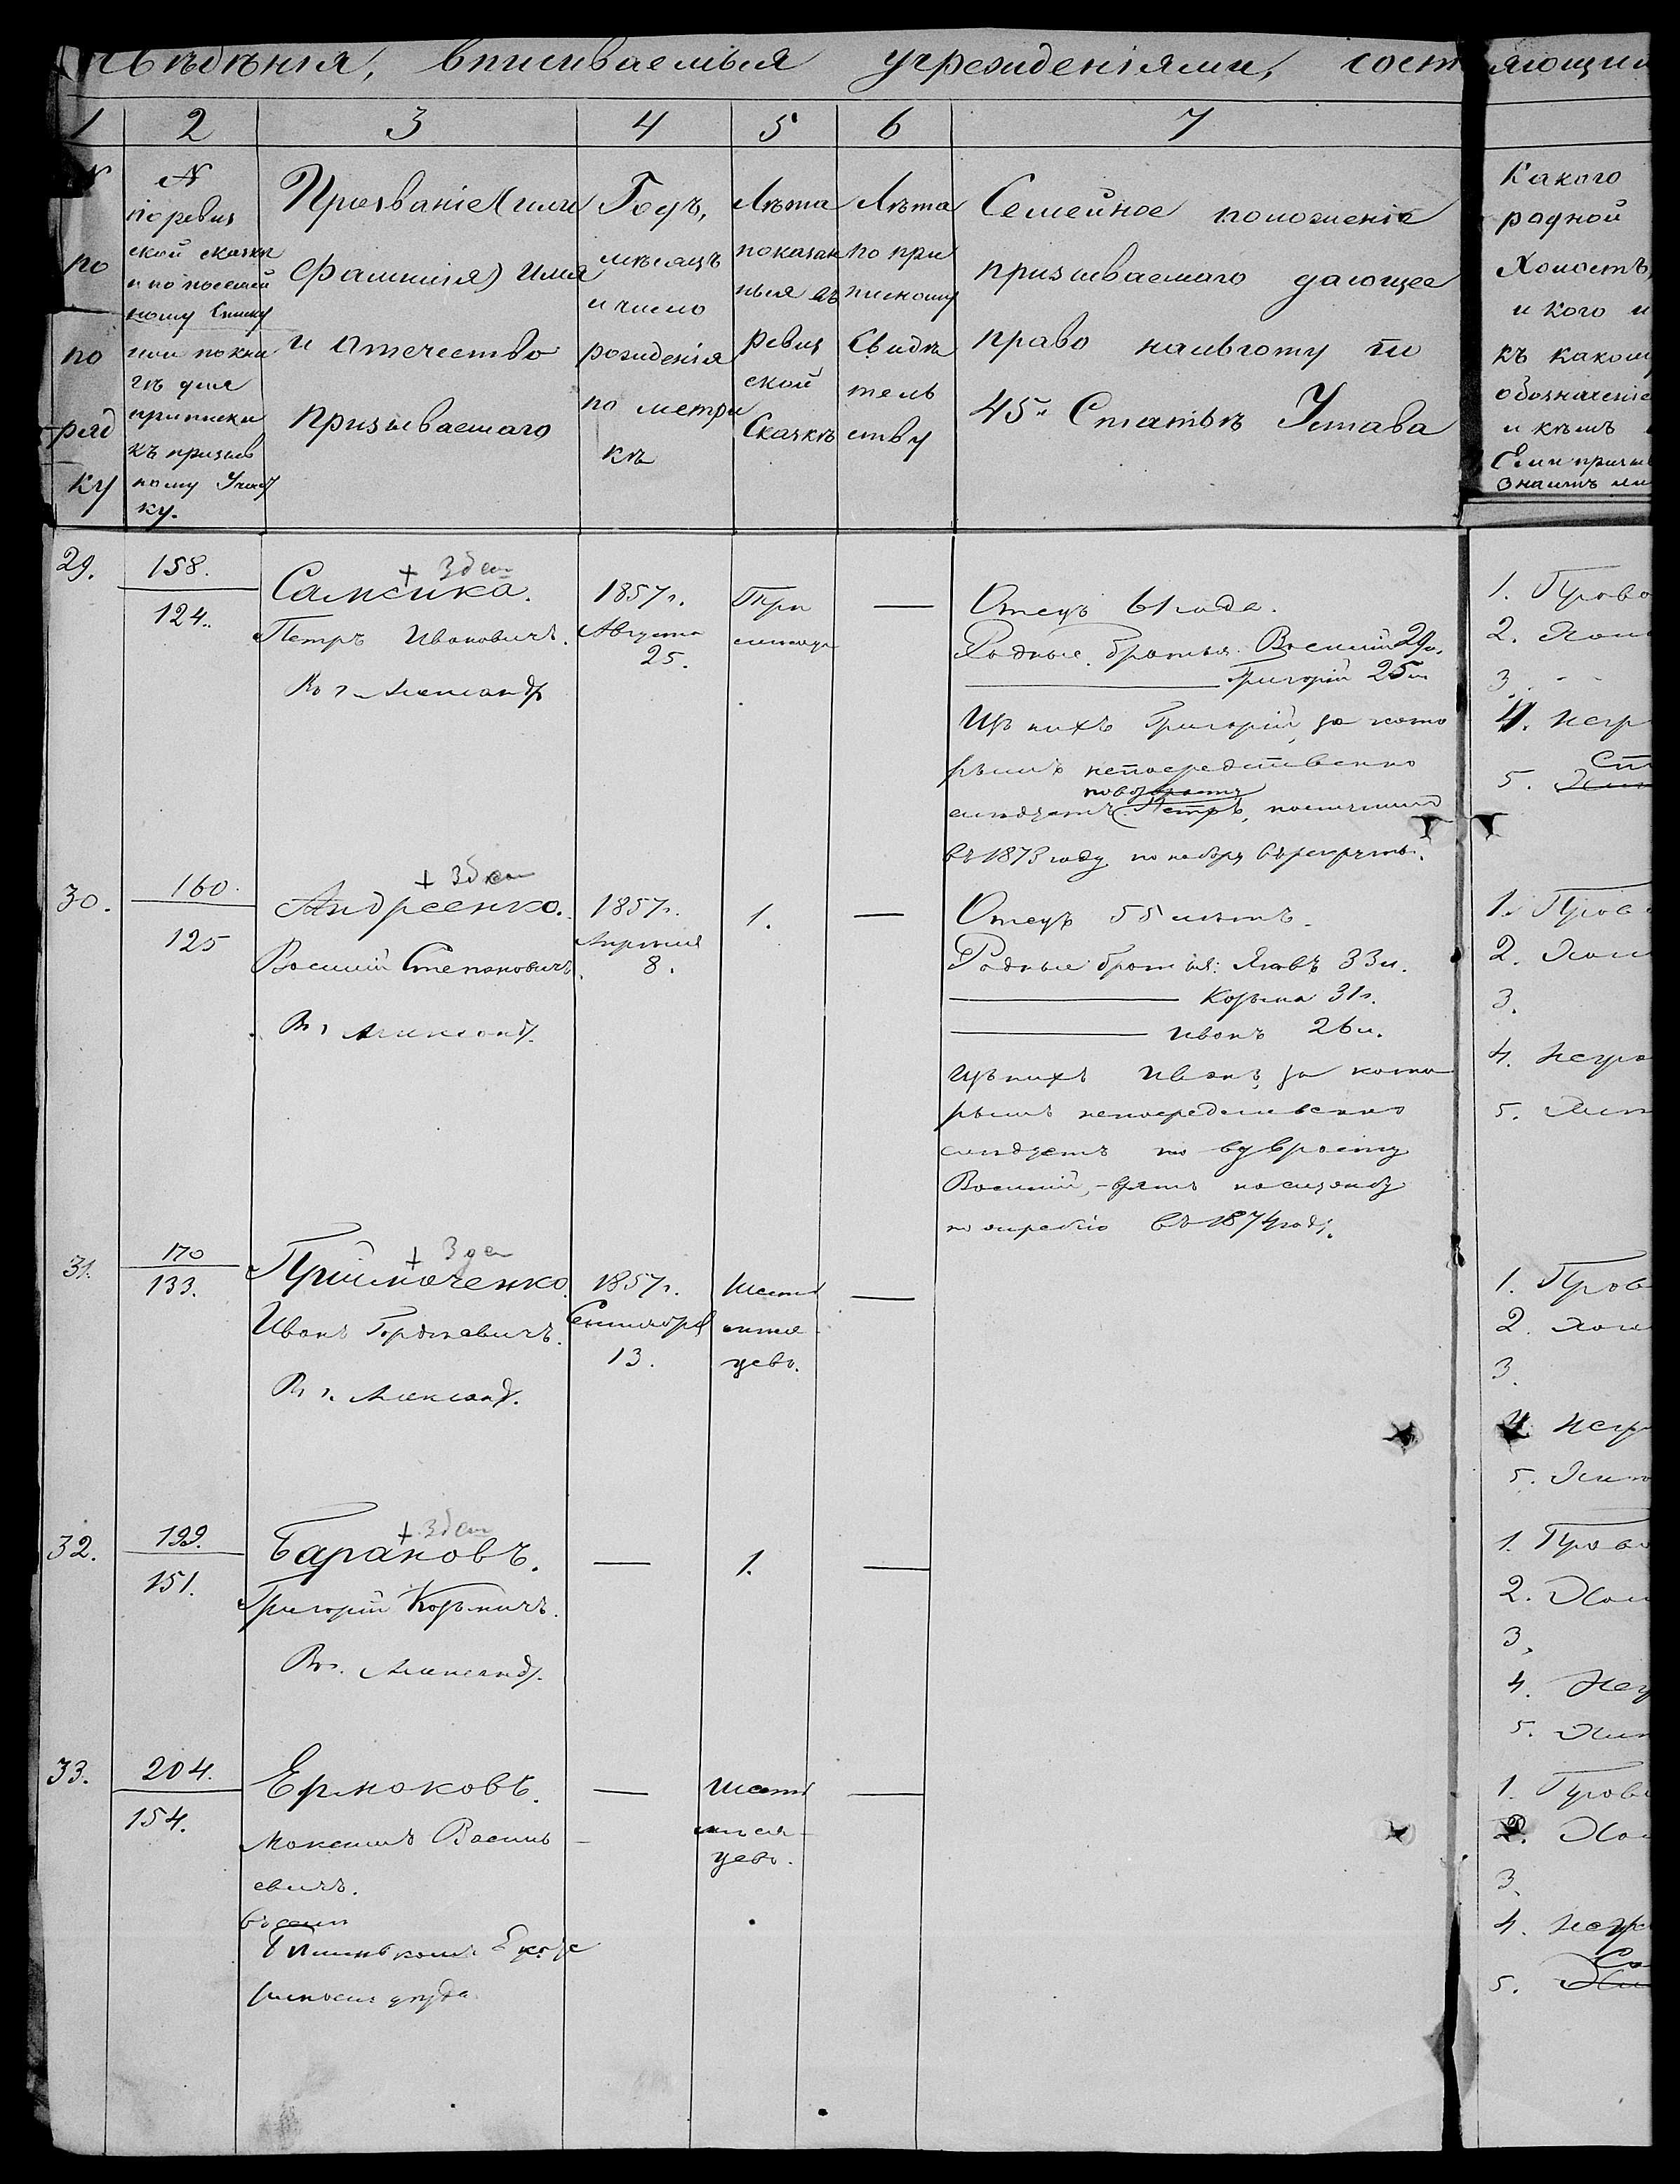 Свѣдѣнія, вписываемыя учрежденіями, сост яющими
1 2 3 4 5 6 7
№ по по ряд ку
№
по ревиз
ской сказкѣ
и по посемей
ному списку
или по кни
гѣ для
приписки
къ призыв
ному Участ
ку.
Прозваніе (или
фамилія) имя
и отечество
призываемаго
Годъ,
мѣсяцъ
и число
рожденія
по метри
кѣ
Лѣта
показан
ныя въ
ревиз
ской
Сказкѣ
Лѣта
по при
писному
Свидѣ
тель
ству
Семейное положеніе
призываемаго дающее
право на льготу по
45й Статьѣ Устава
Какого
родной
Холостъ,
и кого и
къ какому
обозначеніе
и кѣмъ
Если призыв
знаетъ ли
29.
158.
124.
+ Здеш
Самсика.
Петръ Ивановичъ.
Александр
1857г.
Августа
25.
Три
мѣсяца
—
Отецъ 61 года.
Родные братья: Василій 29л.
Григорій 25л
Изъ нихъ Григорій, за кото
рымъ непосредственно
по возрасту
слѣдуетъ Петръ, поступилъ
въ 1873 году по набору въ рекруты.
1.
2. Холо
3. - -
4. Негр
5.
30.
160.
125
+ Здеш
Андреенко.
Василій Степановичъ.
Александ.
1857г.
Апрѣля
8.
1.
—
Отецъ 55 лѣтъ.
Родные братья: Яковъ 33л.
Козьма 31г.
Иванъ 26л.
Изъ нихъ Иванъ, за кото
рымъ непосредственно
слѣдуетъ по возрасту
Василій, - взятъ на службу
по жребію въ 1874 году.
1.
2. Холо
3.
4. Негра
5.
31.
170
133.
+ Здеш
Приймаченко.
Иванъ Гордѣевичъ.
Александ.
1857г.
Сентября
13.
Шесть
мѣся
цевъ.
—
1.
2. Холо
3.
4. Негр
5.
32.
199.
151.
+ Здеш
Барановъ.
Григорій Козьмичъ.
Александ.
—
1.
—
1.
2. Холо
3.
4. Нег
5.
33.
204.
154.
Ермаковъ.
Максимъ Василь
евичъ.
—
Шесть
мѣся
цевъ.
—
1.
2. Хол
3.
4. Негр
5.